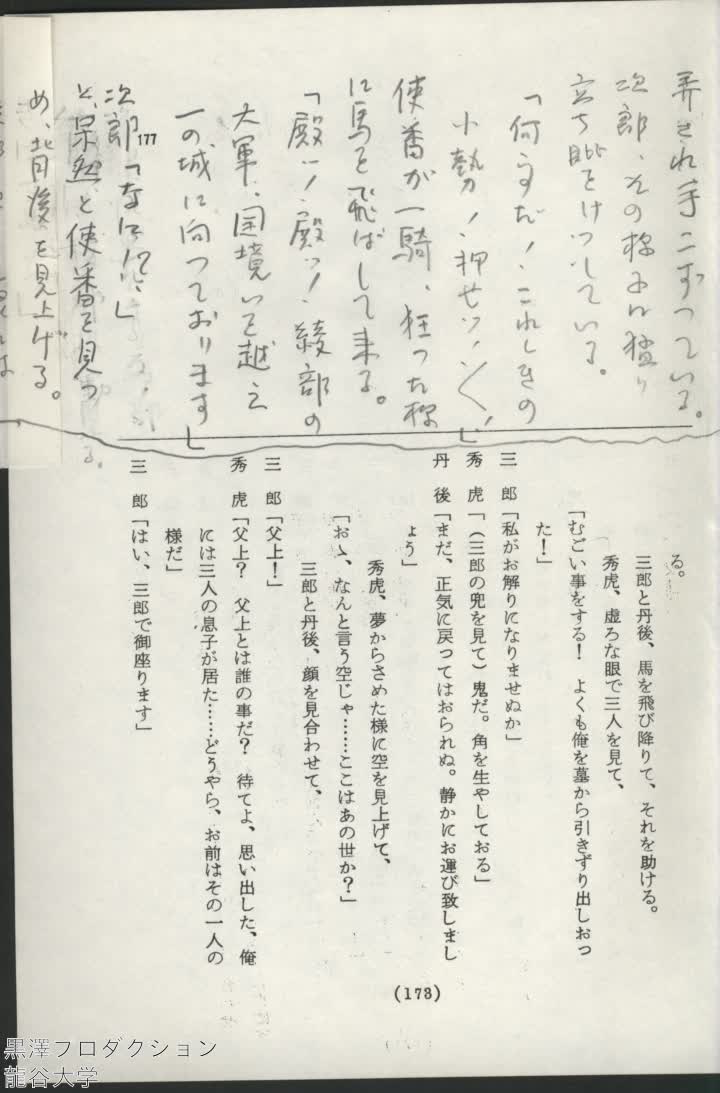 弄され手こずっている。
次郎、その様子に猛り
立ち
をけっしている。
「何うだ！これしきの
小勢！押せッ！
使番が一騎、狂った様
に馬を飛ばして来る。
「殿ッ！殿ッ！綾部の
大軍、国境いを越え
一の城に向っております」
177
次郎「なに!?」
と、呆然と使番を見つ
め、背後を見上げる。
る。
三郎と丹後、馬を飛び降りて、それを助ける。
秀虎、虚ろな眼で三人を見て、
「むごい事をする！　よくも俺を墓から引きずり出しおっ
た！」
三　郎「私がお解りになりませぬか」
秀　虎「（三郎の兜を見て）鬼だ。角を生やしておる」
丹　後「まだ、正気に戻ってはおられぬ。静かにお運び致しまし
ょう」
秀虎、夢からさめた様に空を見上げて、
「おゝ、なんと言う空じゃ……ここはあの世か？」
三郎と丹後、顔を見合わせて、
三　郎「父上！」
秀　虎「父上？　父上とは誰の事だ？　待てよ、思い出した、俺
には三人の息子が居た……どうやら、お前はその一人の
様だ」
三　郎「はい、三郎で御座ります」
(173)
黒澤プロダクション
龍谷大学